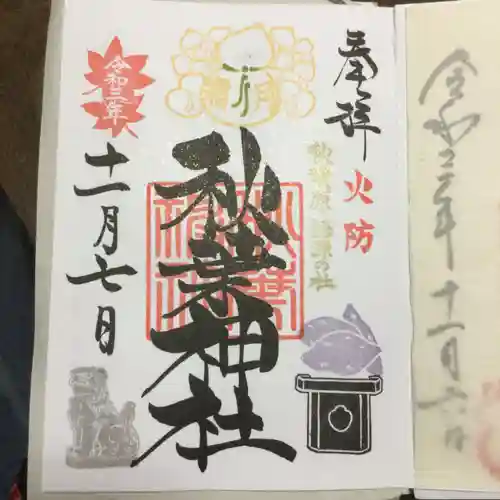 奉拝
火防
秋葉原 起源の社
秋葉神社
霜月
令和三年
十一月七日
令和三年十一月六日